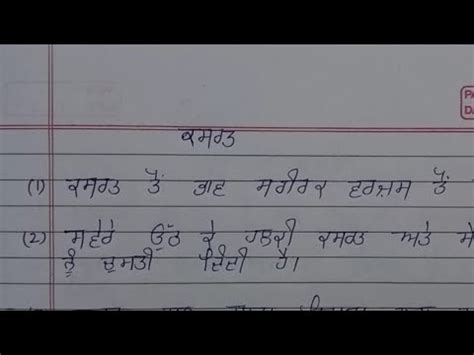 ਕਸਰਤ
(1) ਕਸਰਤ ਤੋਂ ਭਾਵ ਸਰੀਰਕ ਵਰਜ਼ਸ਼ ਤੋਂ
(2) ਸਵੇਰੇ ਉੱਠ ਕੇ ਹਲਕੀ ਕਸਰਤ ਅਤੇ ਸੈ
ਨੂੰ ਚੁਸਤੀ ਦਿੰਦੀ ਹੈ।